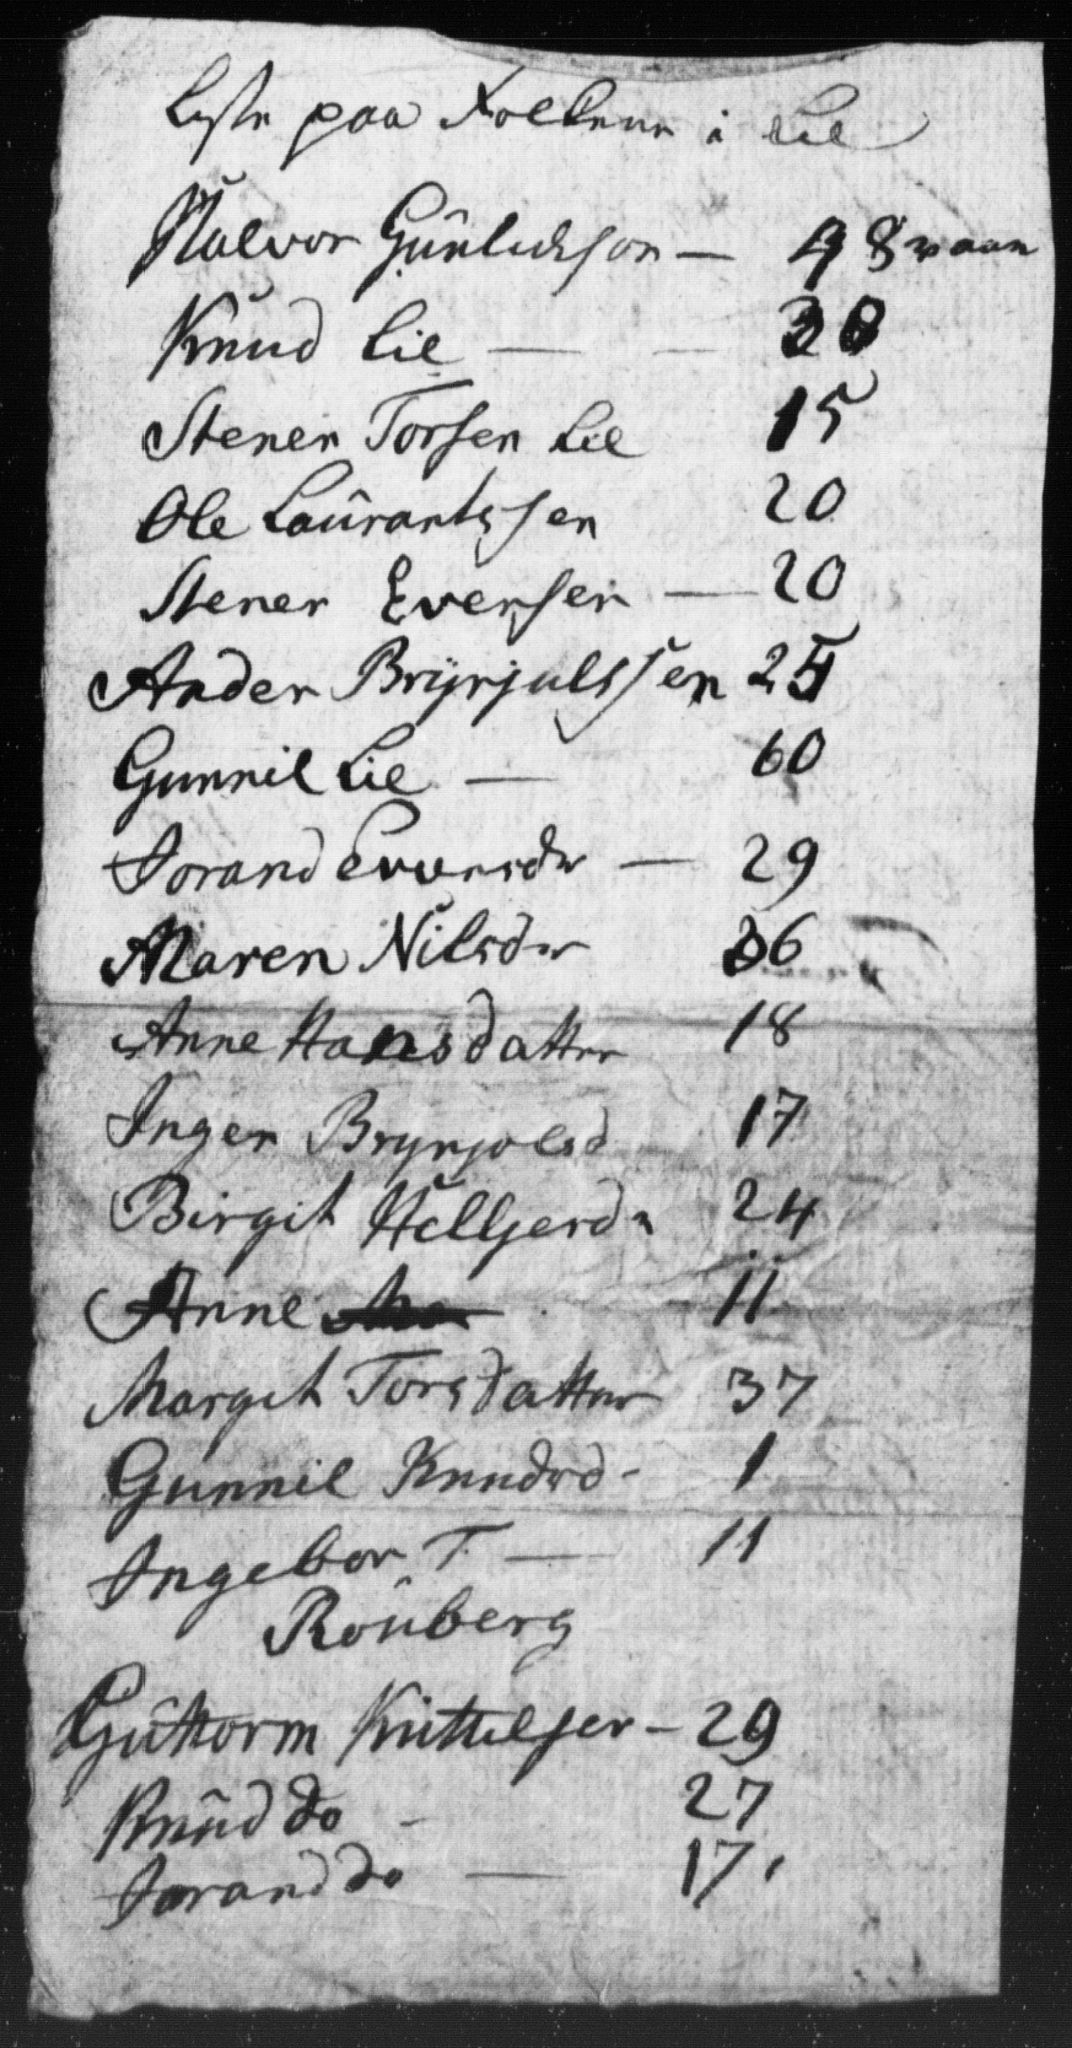 Liste paa Folkene i Lie
Halvor Gûnlichson — 48 Aar
Knûd Lie — — 38
Stener Torsen Lie 15
Ole Laûrantssen 20
Stener Eversen — 20
Ander Brÿnjulssen 25
Gunnil Lie — 60
Jorand Eversdr — 29
Maren Nilsdr 36
Anne Hansdatter 18
Inger Brynjolsd 17
Birgit Helljesdr 24
Anne 11
Margit Torsdatter 37
Gunnil Knudsd - 1
Ingebor T. — 11
Roûberg
Gûttorm Kittelsen - 29
Knûd do - 27
Jorand do — 17